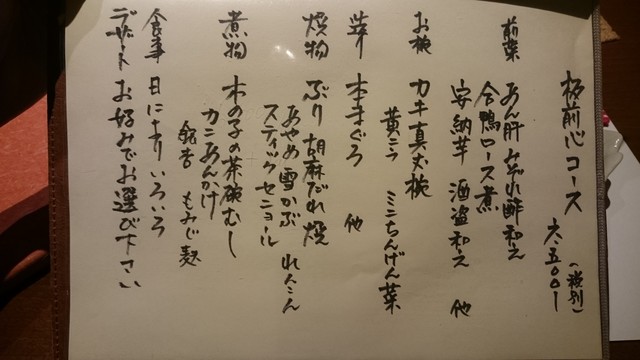 板前心コース
六、五〇〇ー
(税別)
前菜 あん肝みぞれ酢和え
合鴨ロース煮
安納芋 酒盗和え 他
お椀 カキ真丈椀
黄ニラ ミニちんげん菜
造り 本まぐろ 他
焼物 ぶり胡麻だれ焼
あやめ雪かぶ れんこん
スティックセニョール
煮物 木の子の茶碗むし
カニあんかけ
銀杏 もみじ麩
食事 日によりいろいろ
デザート お好みでお選び下さい